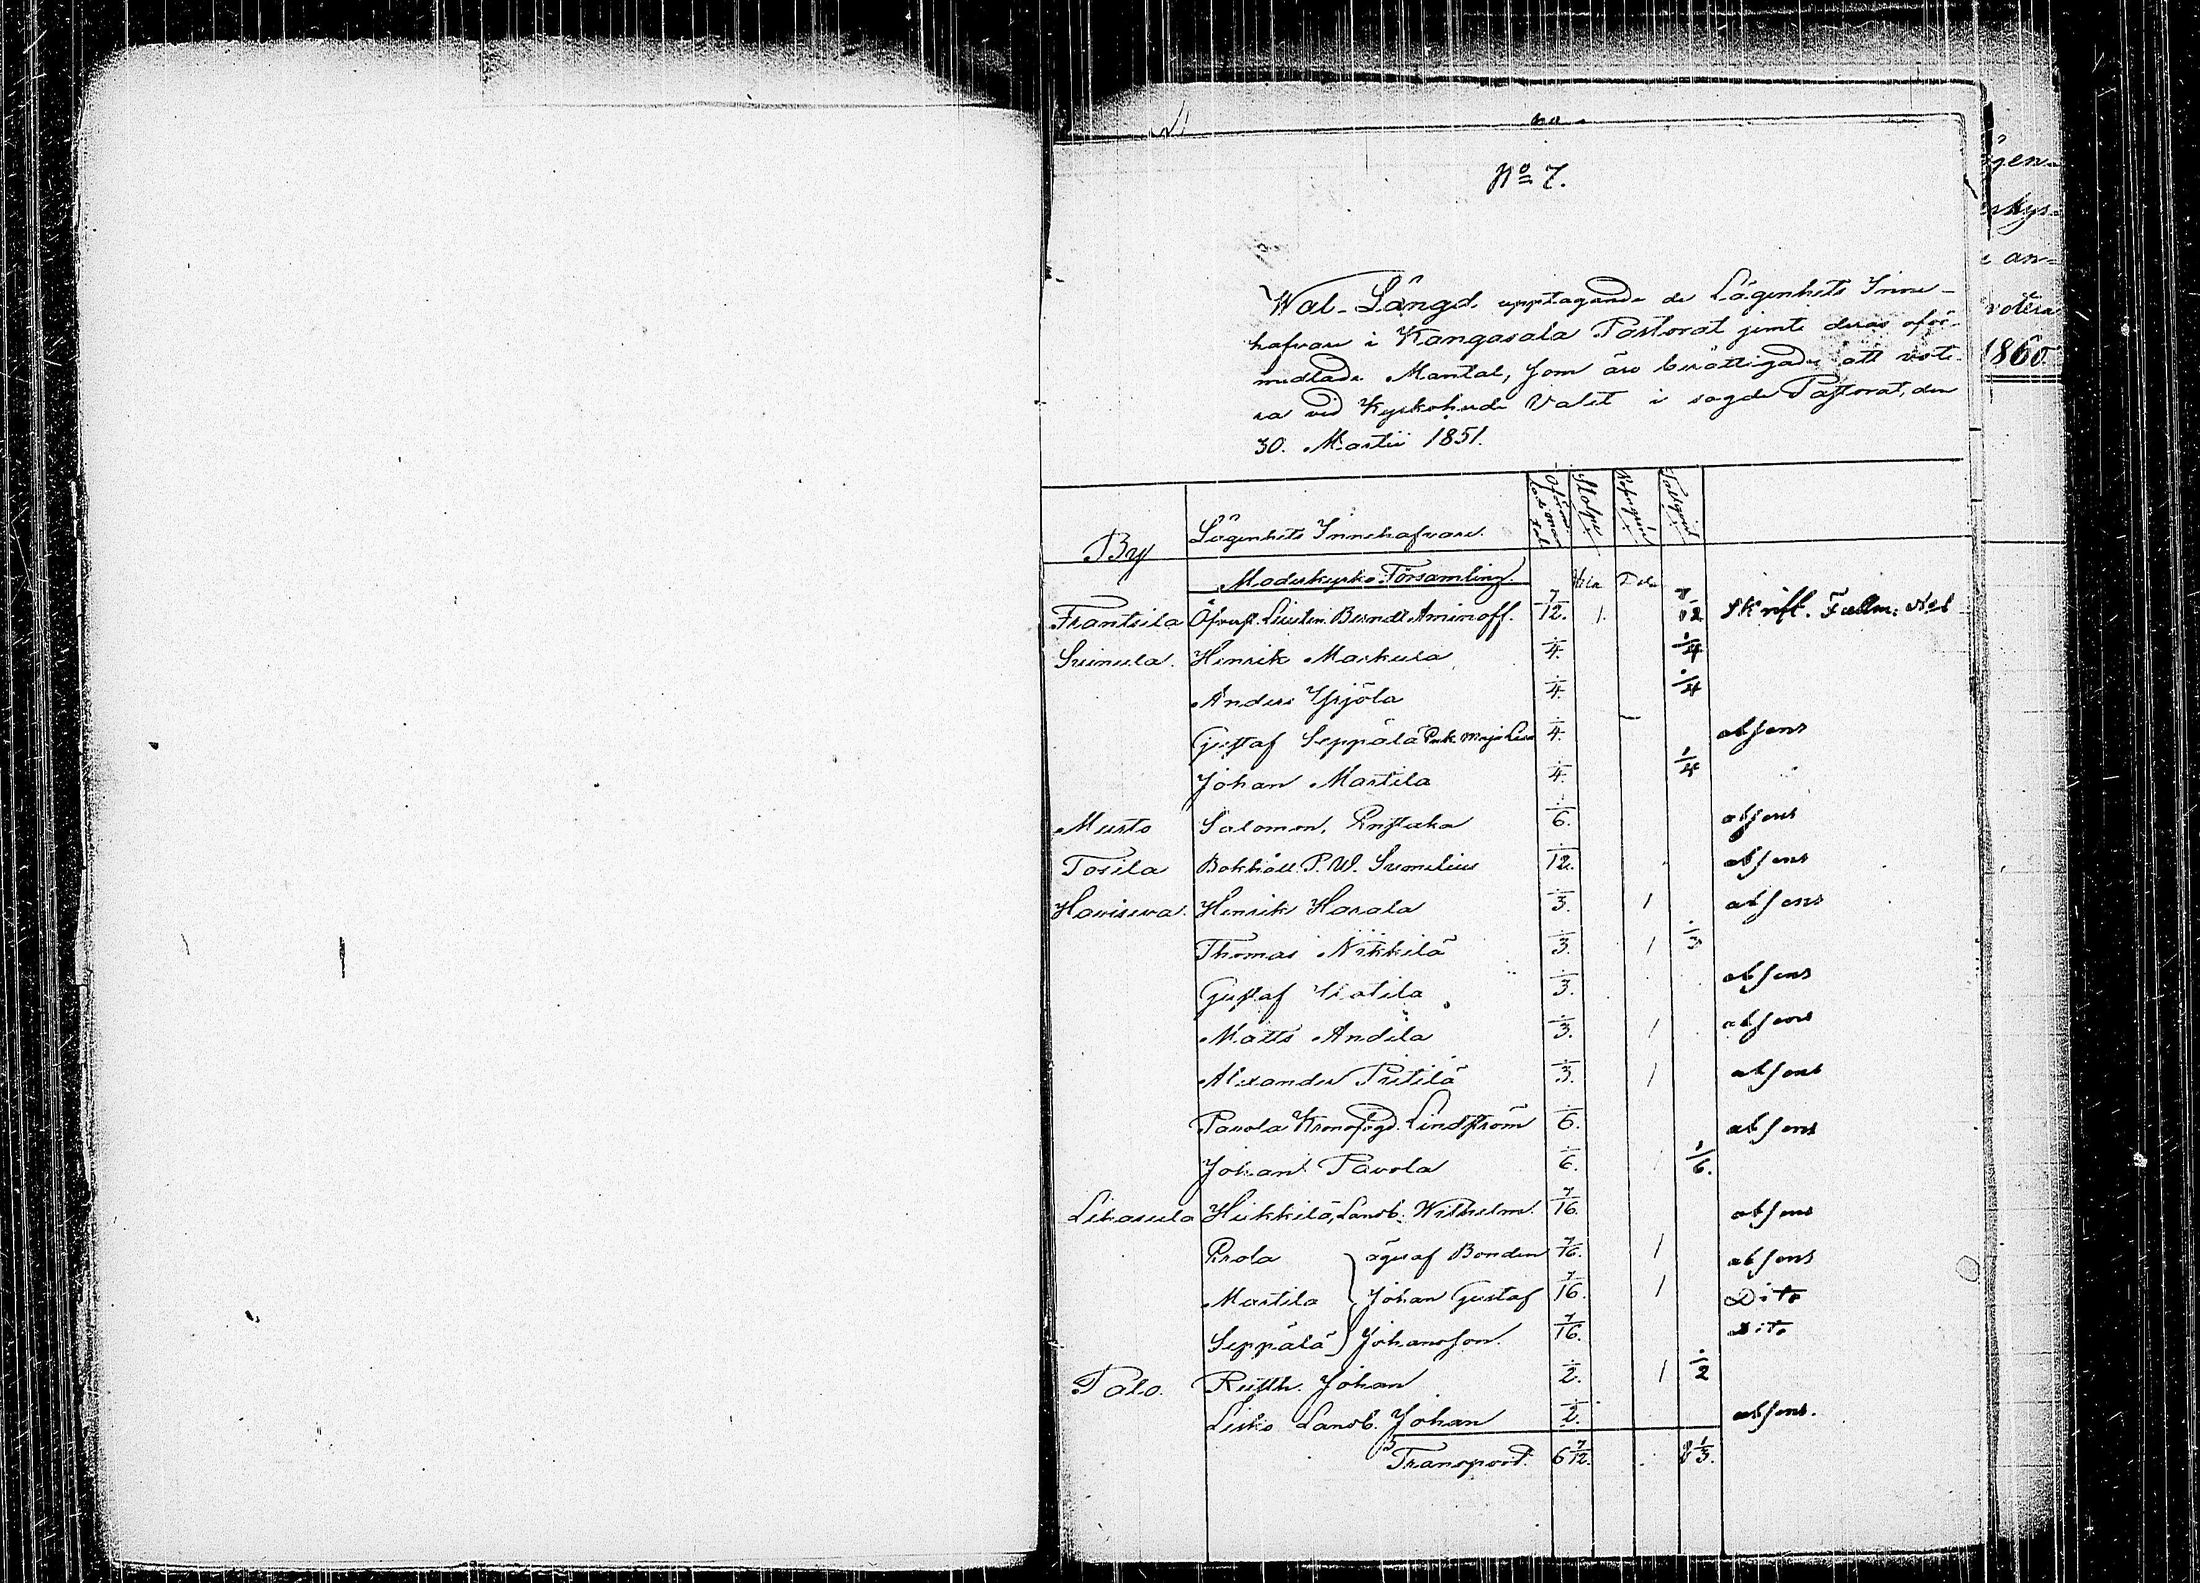 No 7.
Wal-Längd upptagande de Lägenhets Inne-
hafvare i Kangasala Pastorat jemte deras oför-
medlade Mantal, som äro berättigade att vote-
ra vid Kyrkoherde Valet i sagde Pastorat, den
30. Martii 1851.
By Lägenhets Innehafvare.
Moderkyrko Församling.
Frantsila Öfverst. Lieuten. Berndt Aminoff. 7/12. 1. 7/12 Skrift. Fullm:
Suinula. Henrik Markula 1/4. 1/4
Anders Yrjölä 1/4. 1/4
Gustaf Seppälä 1/4. absens
Johan Martila 1/4. 1/4
Musto Salomon, 1/6. absens
Tosila Bokhåll. P. W. Sumelius 1/12. absens
Haviseva. Henrik Harala 1/3. 1 absens
Thomas Nikkilä 1/3. 1 1/3
Gustaf 1/3. absens
Matts Andila 1/3. 1 absens
Alexander Pietilä 1/3. 1 absens
Pavola Kronofogd. Lindström 1/6. absens
Johan Pavola 1/6. 1/6.
Lihasula Heikkilä, Landb. Wilhelm. 7/16. absens
Prola äges af Bonden 7/16. 1 absens
Martila Johan Gustaf 7/16. 1 Dito
Seppälä Johansson. 7/16. Dito
Palo. Rusth. Johan 1/2. 1 1/2
Lisko Landb. Johan 1/2. absens.
Transport. 6 7/12. 1/3.
1860.